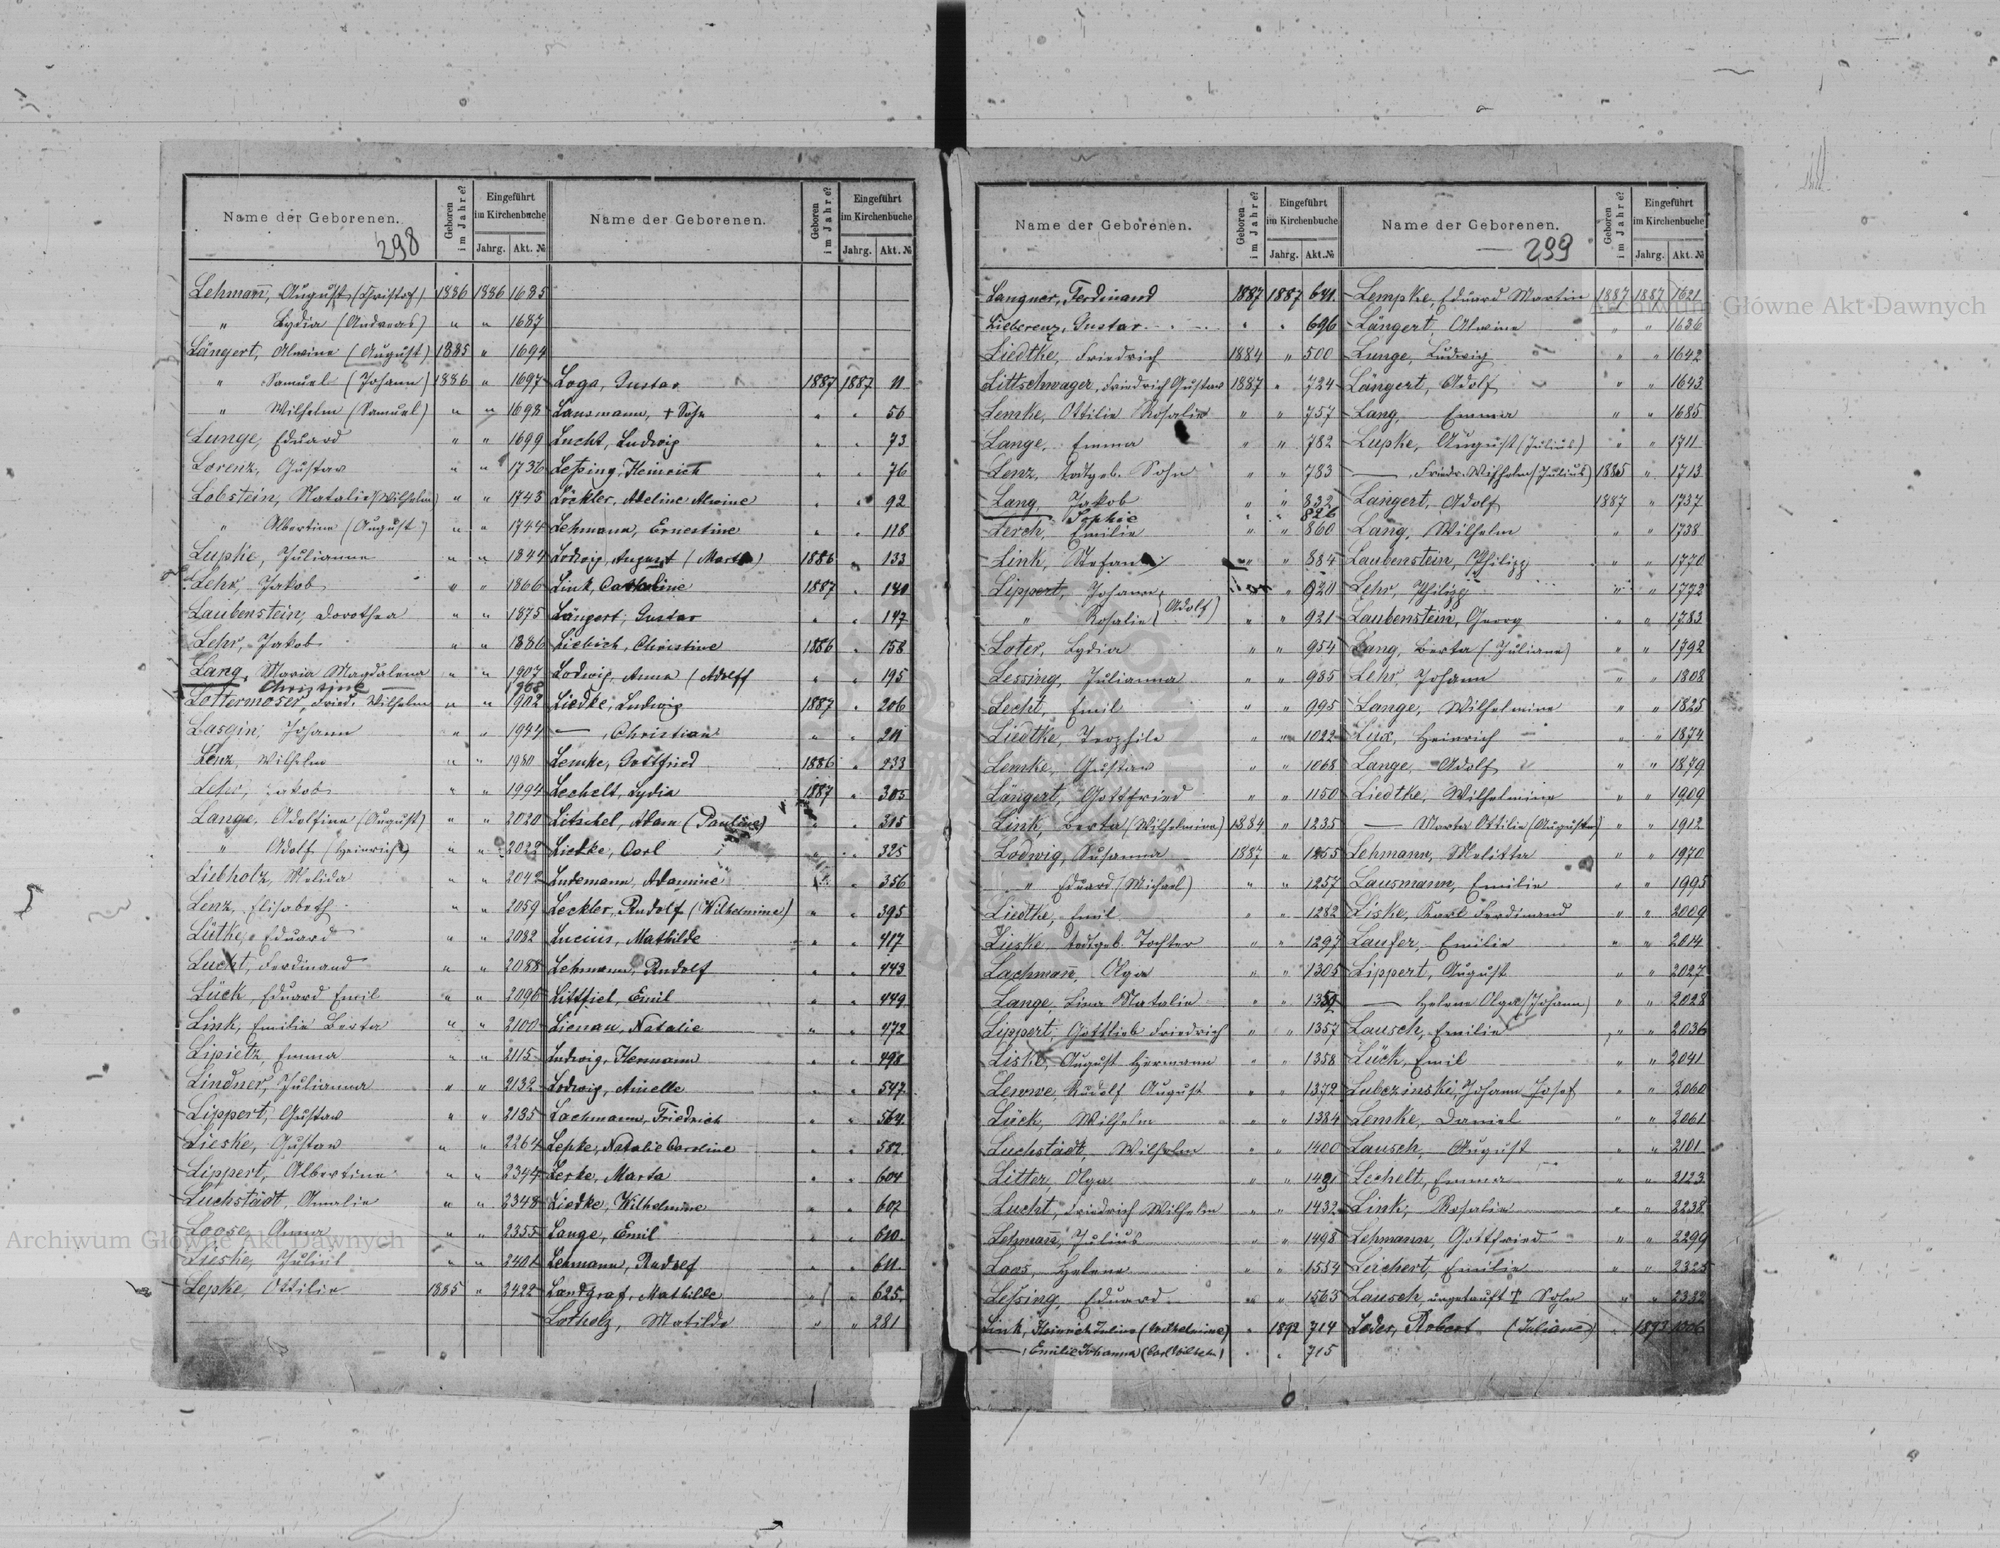 Name der Geborenen.
298
Geboren im Jahre?
Eingeführt im Kirchenbuche
Jahrg. Akt. №
Lehmann, August (Christof) 1886 1886 1685
" Lydia (Andreas) " " 1687
Längert, Alwine (August) 1885 " 1694
" Samuel (Johann) 1886 " 1697
" Wilhelm (Samuel) " " 1698
Lunge, Eduard " " 1699
Lorenz, Gustav " " 1736
Lobstein, Natalie (Wilhelm) " " 1743
" Albertine (August) " " 1744
Lupke, Julianne " " 1844
Lehr, Jakob " " 1866
Laubenstein, Dorothea " " 1875
Lehr, Jakob " " 1886
Lang, Maria Magdalena " " 1907
Christine 1908
Lottermoser, Fried. Wilhelm " " 1902
Lasgin, Johann " " 1944
Lenz, Wilhelm " " 1980
Lehr, Jakob " " 1994
Lange, Adolfine (August) " " 2020
" Adolf (Heinrich) " " 2022
Liebholz, Melida " " 2042
Lenz, Elisabeth " " 2059
Lütke, Eduard " " 2082
Lucht, Ferdinand " " 2088
Lück, Eduard Emil " " 2096
Link, Emilie Berta " " 2100
Lipietz, Emma " " 2115
Lindner, Julianna " " 2132
Lippert, Gustav " " 2185
Lieske, Gustav " " 2264
Lippert, Albertine " " 2344
Luchstädt, Amalie " " 2348
Loose, Anna " " 2355
Lieske, Julius " " 2401
Lepke, Ottilie 1885 " 2422
Name der Geborenen.
Geboren im Jahre?
Eingeführt im Kirchenbuche
Jahrg. Akt. №
Loga, Gustav 1887 1887 11
Lausmann, + Sohn " " 56
Lucht, Ludwig " " 73
Leßing, Heinrich " " 76
Löckler, Adeline Alwine " " 92
Lehmann, Ernestine " " 118
Lodwig, August (Martin) 1886 " 133
Link, Caroline 1887 " 140
Längert, Gustav " " 147
Liebich, Christine 1886 " 158
Lodwig, Anna (Adolf) " " 195
Liedke, Ludwig 1887 " 206
— , Christian " " 211
Lemke, Gottfried 1886 " 233
Lechelt, Lydia 1887 " 305
Litschel, Adam (Pauline) " " 315
Liedke, Carl " " 325
Ludemann, Adamine " " 356
Leckler, Rudolf (Wilhelmine) " " 395
Lucius, Mathilde " " 417
Lehmann, Rudolf " " 443
Littfiel, Emil " " 449
Lienau, Natalie " " 472
Ludwig, Hermann " " 498
Lodwig, Amelle " " 547
Lachmann, Friedrich " " 564
Lepke, Natalie Caroline " " 582
Lerke, Marta " " 604
Liedke, Wilhelmine " " 607
Lange, Emil " " 610
Lehmann, Rudolf " " 611
Landgraf, Mathilde " " 625
Lotholz, Matilde " " 281
Name der Geborenen.
Geboren im Jahre?
Eingeführt im Kirchenbuche
Jahrg. Akt.№
Langner, Ferdinand 1887 1887 641
Lieberenz, Gustav " " 696
Liedtke, Friedrich 1884 " 500
Littschwager, Friedrich Gustav 1887 " 724
Lemke, Ottilie Rosalie " " 757
Lange, Emma " " 782
Lenz, todtgeb. Sohn " " 783
Lang, Jakob " " 832
Sophie " " 826
Lerch, Emilie " " 860
Link, Stefan " 884
Lippert, Johann " 920
" Rosalie (Adolf) " " 921
Loter, Lydia " " 954
Lessing, Julianna " " 985
Lecht, Emil " " 995
Liedtke, Teophile " " 1022
Lemke, Gustav " " 1068
Längert, Gottfried " " 1150
Link, Berta (Wilhelmine) 1884 " 1235
Lodwig, Susanna 1887 " 1255
" Eduard (Michael) " " 1257
Liedtke, Emil " " 1282
Lieske, todtgeb. Tochter " " 1297
Lachmann, Olga " " 1305
Lange, Lina Natalie " "
Lippert, Gottlieb Friedrich " " 1357
Liske, August Hermann " " 1358
Lewwe, Rudolf August " " 1372
Lück, Wilhelm " " 1384
Luchstädt, Wilhelm " " 1400
Litter, Olga " " 1421
Lucht, Friedrich Wilhelm " " 1432
Lehmann, Julius " " 1498
Loos, Helene " " 1554
Leßing, Eduard " " 1563
Link, Heinrich Julius (Wilhelmine) " 1892 714
— , Emilie Johanna (Carl Wilhelm) " " 715
Name der Geborenen.
299
Geboren im Jahre?
Eingeführt im Kirchenbuche
Jahrg. Akt. №
Lempke, Eduard Martin 1887 1887 1621
Längert, Alwine " " 1636
Lunge, Ludwig " " 1642
Längert, Adolf " " 1643
Lang, Emma " " 1685
Lupke, August (Julius) " " 1711
— Friedr. Wilhelm (Julius) 1885 " 1713
Längert, Adolf 1887 " 1737
Lang, Wilhelm " " 1738
Laubenstein, Philipp " " 1770
Lehr, Philipp " " 1772
Laubenstein, Georg " " 1783
Lang, Berta (Juliane) " " 1792
Lehr, Johann " " 1808
Lange, Wilhelmine " " 1825
Lux, Heinrich " " 1874
Lange, Adolf " " 1879
Liedtke, Wilhelmine " " 1909
— Marta Ottilie (Auguste) " " 1912
Lehmann, Melitta " " 1970
Lausmann, Emilie " " 1995
Liske, Karl Ferdinand " " 2009
Laufer, Emilie " " 2014
Lippert, August " " 2027
— Helene Olga (Johann) " " 2028
Lausch, Emilie " " 2036
Lück, Emil " " 2041
Lubczinski, Johann Josef " " 2060
Lemke, Daniel " " 2061
Lausch, August " " 2101
Lechelt, Emma " " 2123
Link, Rosalie " " 2238
Lehmann, Gottfried " " 2299
Leichert, Emilie " " 2325
Lausch, ungetauft † Sohn " " 2332
Loder, Robert (Juliane) " 1893
Archiwum Główne Akt Dawnych
Archiwum Główne Akt Dawnych